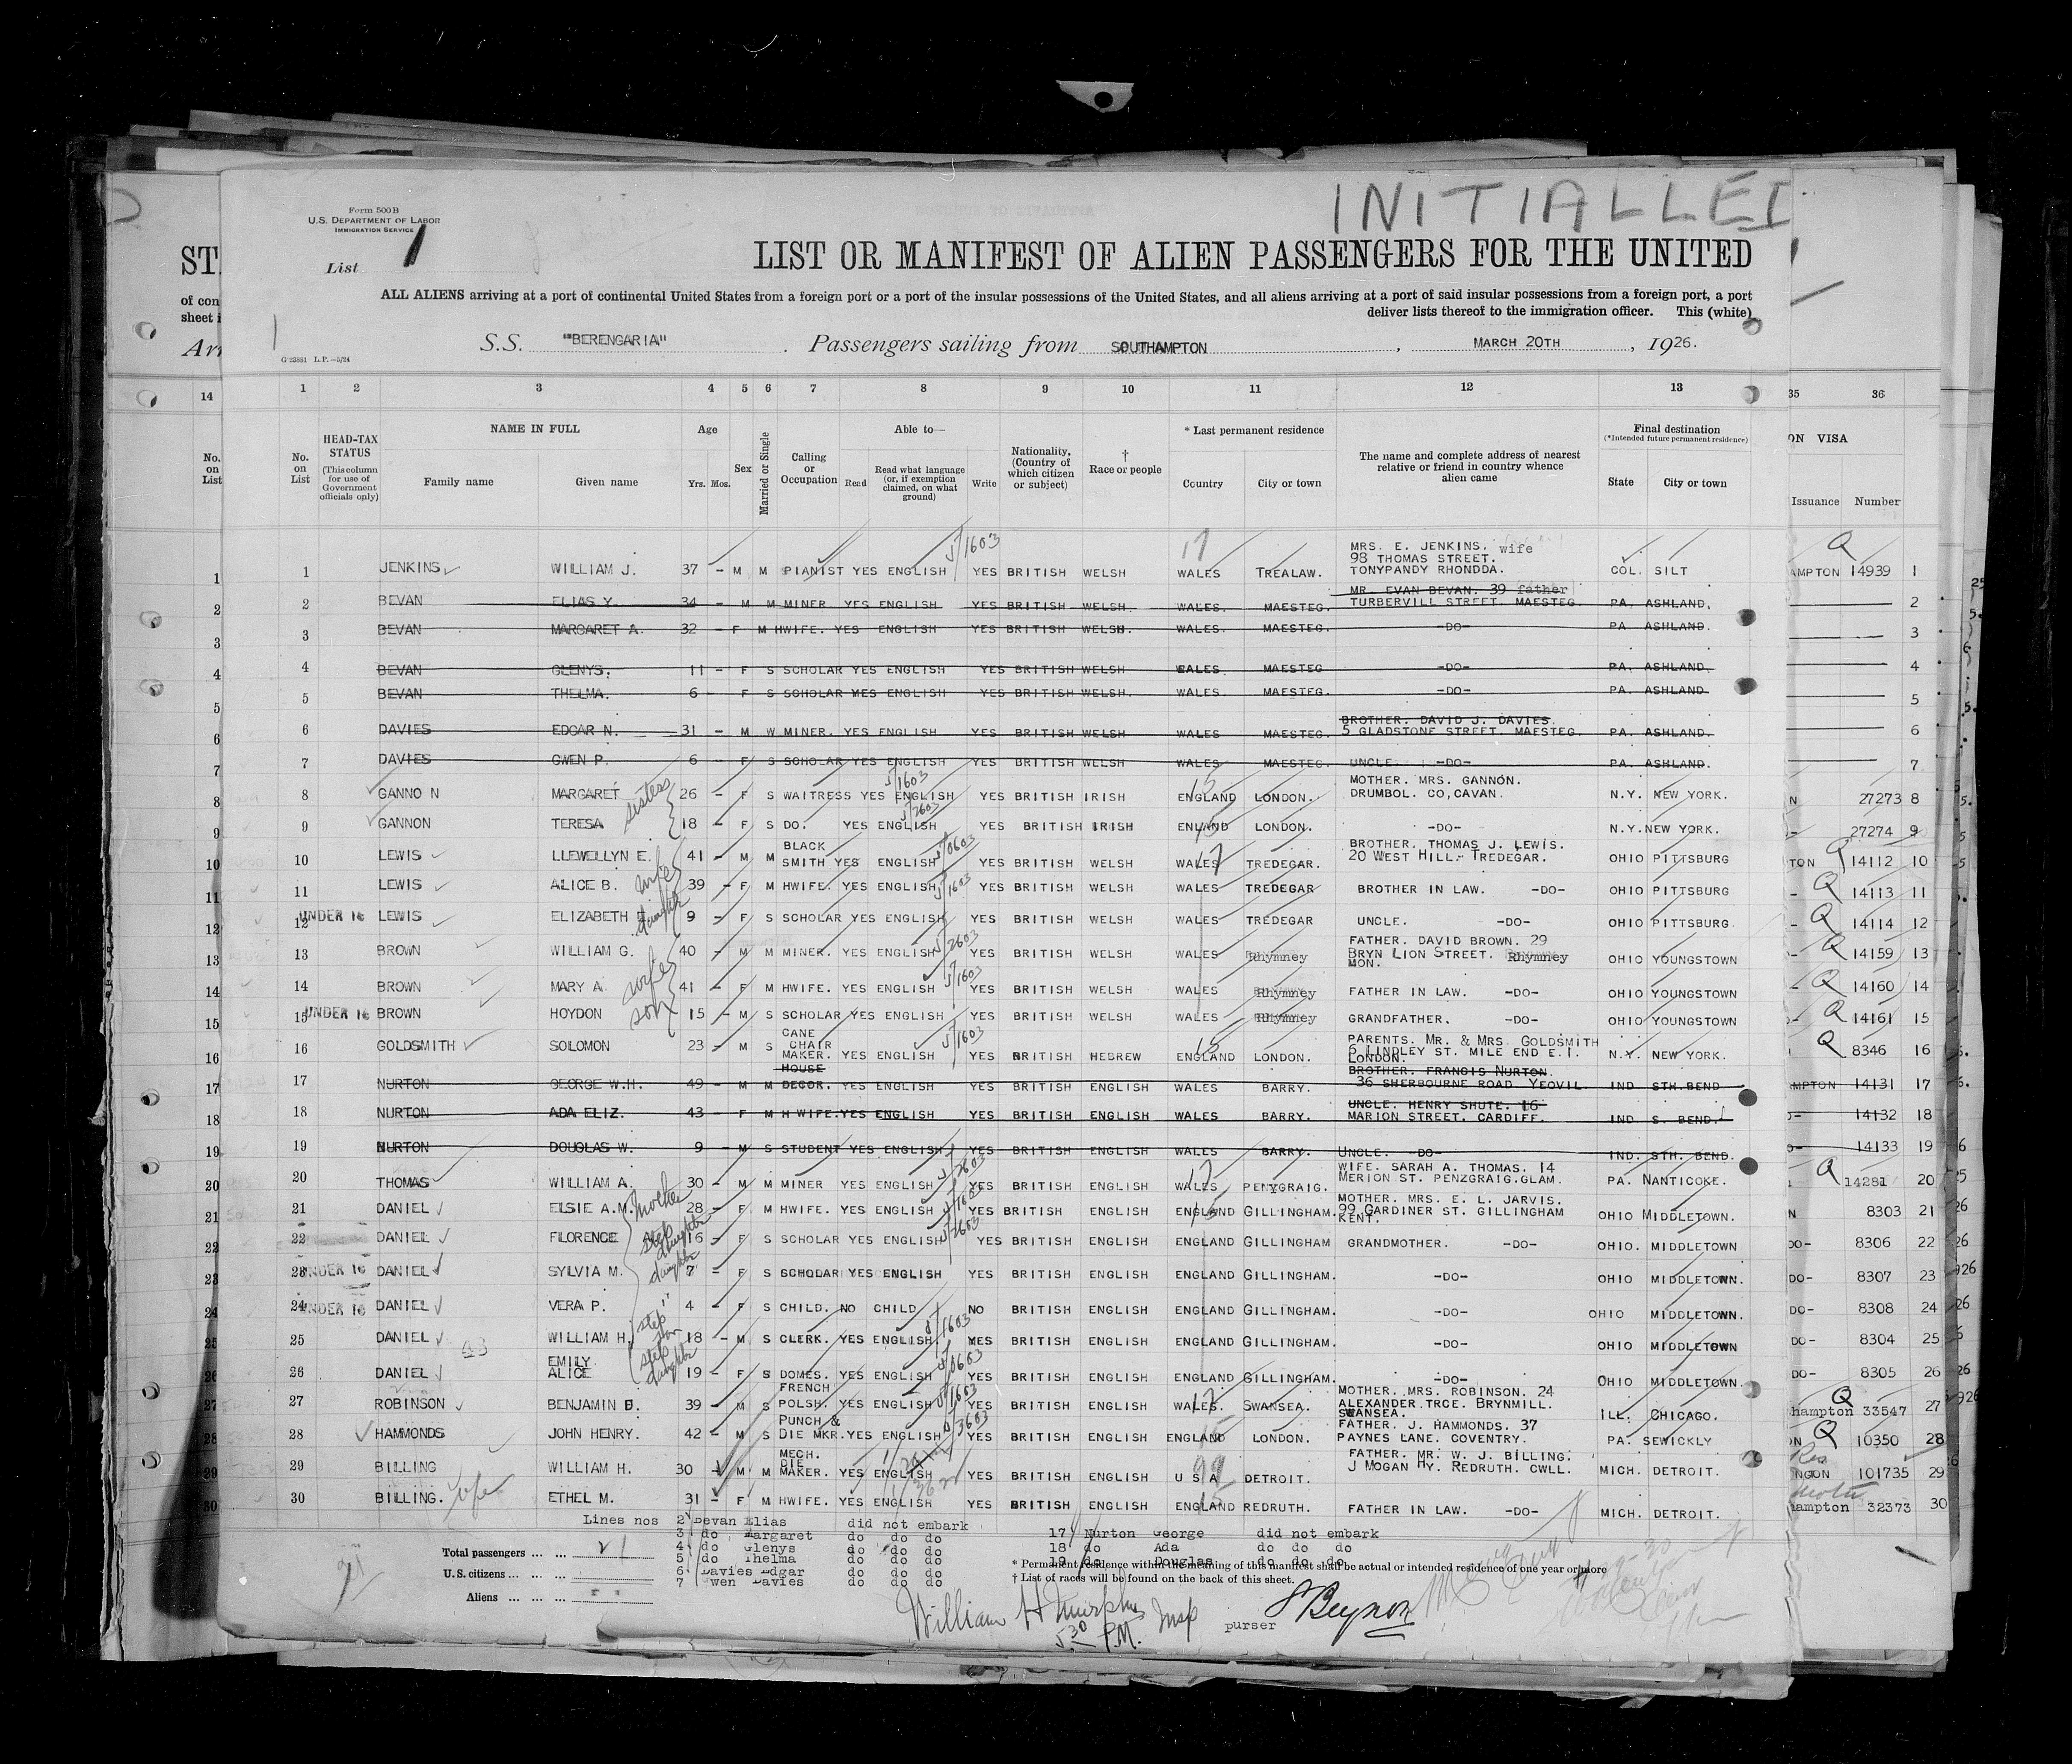 INITIALLED
Form 500 B
U.S. DEPARTMENT OF LABOR
IMMIGRATION SERVICE
List 1
LIST OR MANIFEST OF ALIEN PASSENGERS FOR THE UNITED
ALL ALIENS arriving at a port of continental United States from a foreign port or a port of the insular possessions of the United States, and all aliens arriving at a port of said insular possessions from a foreign port, a port
deliver lists thereof to the immigration officer. This (white)
S.S. "BERENGARIA" . Passengers sailing from SOUTHAMPTON , MARCH 20TH , 1926.
1 2 3 4 5 6 7 8 9 10 11 12 13 35 36
No. on List
HEAD-TAX STATUS (This column for use of Government officials only)
NAME IN FULL Family name Given name
Age Yrs. Mos.
Sex
Married or Single
Calling or Occupation
Able to— Read Read what language (or, if exemption claimed, on what ground) Write
Nationality, (Country of which citizen or subject)
† Race or people
* Last permanent residence Country City or town
The name and complete address of nearest relative or friend in country whence alien came
Final destination (*Intended future permanent residence) State City or town
ON VISA Issuance Number
1 JENKINS WILLIAM J. 37 - M M PIANIST YES ENGLISH YES BRITISH WELSH WALES TREALAW. MRS. E. JENKINS. wife 98 THOMAS STREET. TONYPANDY RHONDDA. COL. SILT AMPTON 14939 1
2 BEVAN ELIAS Y. 34 - M M MINER YES ENGLISH YES BRITISH WELSH. WALES. MAESTEG. MR. EVAN BEVAN. 39 father TURBERVILL STREET. MAESTEG. PA. ASHLAND. 2
3 BEVAN MARGARET A. 32 - F M HWIFE. YES ENGLISH YES BRITISH WELSH. WALES. MAESTEG. -DO- PA ASHLAND. 3
4 BEVAN GLENYS. 11 - F S SCHOLAR YES ENGLISH YES BRITISH WELSH WALES MAESTEG -DO- PA. ASHLAND. 4
5 BEVAN THELMA. 6 - F S SCHOLAR YES ENGLISH YES BRITISH WELSH. WALES. MAESTEG. -DO- PA. ASHLAND 5
6 DAVIES EDGAR N. 31 - M W MINER. YES ENGLISH YES BRITISH WELSH WALES MAESTEG. BROTHER. DAVID J. DAVIES. 5 GLADSTONE STREET. MAESTEG. PA. ASHLAND. 6
7 DAVIES GWEN P. 6 - F S SCHOLAR YES ENGLISH YES BRITISH WELSH WALES MAESTEG. UNCLE. -DO- PA. ASHLAND. 7
8 GANNO N MARGARET sisters 26 - F S WAITRESS YES ENGLISH YES BRITISH IRISH ENGLAND LONDON. MOTHER. MRS. GANNON. DRUMBOL. CO,CAVAN. N.Y. NEW YORK. 27273 8
9 GANNON TERESA 18 - F S DO. YES ENGLISH YES BRITISH IRISH ENLAND LONDON. -DO- N.Y. NEW YORK. 27274 9
10 LEWIS LLEWELLYN E. 41 - M M BLACK SMITH YES ENGLISH YES BRITISH WELSH WALES TREDEGAR. BROTHER. THOMAS J. LEWIS. 20 WEST HILL.- TREDEGAR. OHIO PITTSBURG TON 14112 10
11 LEWIS ALICE B. wife 39 - F M HWIFE. YES ENGLISH YES BRITISH WELSH WALES TREDEGAR BROTHER IN LAW. -DO- OHIO PITTSBURG 14113 11
12 UNDER 16 LEWIS ELIZABETH daughter 9 - F S SCHOLAR YES ENGLISH YES BRITISH WELSH WALES TREDEGAR UNCLE. -DO- OHIO PITTSBURG 14114 12
13 BROWN WILLIAM G. 40 - M M MINER. YES ENGLISH YES BRITISH WELSH WALES Rhymney FATHER. DAVID BROWN. 29 BRYN LION STREET. Rhymney MON. OHIO YOUNGSTOWN 14159 13
14 BROWN MARY A wife 41 - F M HWIFE. YES ENGLISH YES BRITISH WELSH WALES Rhymney FATHER IN LAW. -DO- OHIO YOUNGSTOWN 14160 14
15 UNDER 16 BROWN HOYDON son 15 - M S SCHOLAR YES ENGLISH YES BRITISH WELSH WALES Rhymney GRANDFATHER. -DO- OHIO YOUNGSTOWN 14161 15
16 GOLDSMITH SOLOMON 23 - M S CANE CHAIR MAKER. YES ENGLISH YES BRITISH HEBREW ENGLAND LONDON. PARENTS. MR. & MRS GOLDSMITH 6 LINDLEY ST. MILE END E.1. LONDON. N.Y. NEW YORK. 8346 16
17 NURTON GEORGE W.H. 49 - M M HOUSE DECOR. YES ENGLISH YES BRITISH ENGLISH WALES BARRY. BROTHER. FRANCIS NURTON. 36 SHERBOURNE ROAD. YEOVIL. IND STH.BEND MPTON 14131 17
18 NURTON ADA ELIZ. 43 - F M H WIFE. YES ENGLISH YES BRITISH ENGLISH WALES BARRY. UNCLE. HENRY SHUTE. 16 MARION STREET. CARDIFF. IND S. BEND. 14132 18
19 NURTON DOUGLAS W. 9 - M S STUDENT YES ENGLISH YES BRITISH ENGLISH WALES BARRY. UNCLE. -DO- IND. STH. BEND. 14133 19
20 THOMAS WILLIAM A. 30 - M M MINER YES ENGLISH YES BRITISH ENGLISH WALES PENYGRAIG. WIFE. SARAH A. THOMAS. 14 MERION ST. PENZGRAIG.GLAM. PA. NANTICOKE. 14281 20
21 DANIEL ELSIE A.M. mother 28 - F M HWIFE. YES ENGLISH YES BRITISH ENGLISH ENGLAND GILLINGHAM. MOTHER. MRS. E. L. JARVIS. 99 GARDINER ST. GILLINGHAM KENT. OHIO MIDDLETOWN. 8303 21
22 DANIEL FLORENCE step daughter 16 - F S SCHOLAR YES ENGLISH YES BRITISH ENGLISH ENGLAND GILLINGHAM GRANDMOTHER. -DO- OHIO. MIDDLETOWN DO- 8306 22
23 UNDER 16 DANIEL SYLVIA M. daughter 7 - F S SCHOLAR YES ENGLISH YES BRITISH ENGLISH ENGLAND GILLINGHAM. -DO- OHIO MIDDLETOWN. DO- 8307 23
24 UNDER 16 DANIEL VERA P. " 4 - F S CHILD. NO CHILD NO BRITISH ENGLISH ENGLAND GILLINGHAM. -DO- OHIO MIDDLETOWN. DO- 8308 24
25 DANIEL WILLIAM H. step son 18 - M S CLERK. YES ENGLISH YES BRITISH ENGLISH ENGLAND GILLINGHAM. -DO- OHIO MIDDLETOWN DO- 8304 25
26 DANIEL EMILY ALICE step daughter 19 - F S DOMES. YES ENGLISH YES BRITISH ENGLISH ENGLAND GILLINGHAM. -DO- OHIO MIDDLETOWN. DO- 8305 26
27 ROBINSON BENJAMIN D. 39 - M S FRENCH POLSH. YES ENGLISH YES BRITISH ENGLISH WALES. SWANSEA. MOTHER. MRS. ROBINSON. 24 ALEXANDER.TRCE. BRYNMILL. SWANSEA. ILL. CHICAGO. hampton 33547 27
28 HAMMONDS JOHN HENRY. 42 - M S PUNCH & DIE MKR. YES ENGLISH YES BRITISH ENGLISH ENGLAND LONDON. FATHER. J. HAMMONDS. 37 PAYNES LANE. COVENTRY. PA. SEWICKLY ON 10350 28
29 BILLING WILLIAM H. 30 - M M MECH. DIE MAKER. YES ENGLISH YES BRITISH ENGLISH U S A DETROIT. FATHER. MR. W. J. BILLING. J MOGAN HY. REDRUTH. CWLL. MICH. DETROIT. NGTON 101735 29
30 BILLING. wife ETHEL M. 31 - F M HWIFE. YES ENGLISH YES BRITISH ENGLISH ENGLAND REDRUTH. FATHER IN LAW. -DO- MICH. DETROIT. hampton 32373 30
Lines nos 2 Bevan Elias did not embark 17 Nurton George did not embark
3 do Margaret do do do 18 do Ada do do do
4 do Glenys do do do 19 do Douglas do do do
5 do Thelma do do do
6 Davies Edgar do do do
7 Gwen Davies do do do
Total passengers ... ... 21
U.S. citizens ... ... ...
Aliens ... ... ...
* Permanent residence within the meaning of this manifest shall be actual or intended residence of one year or more
† List of races will be found on the back of this sheet.
William H Murphy Insp
5 30 P.M.
purser
S Beynon